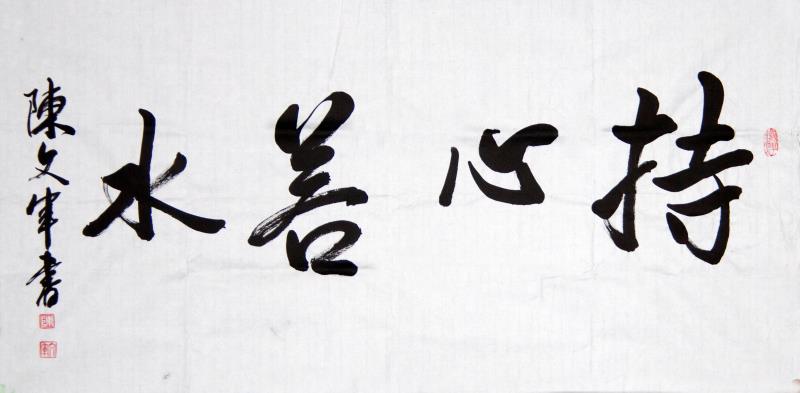 持心若水
陳文軍書